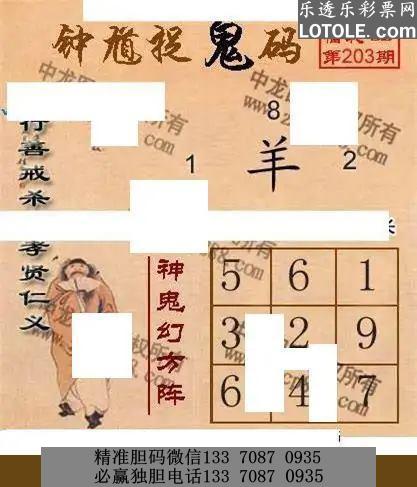 乐透乐彩票网
LOTOLE.COM
钟馗捉鬼码
第203期
8
羊
1
2
行善戒杀
孝贤仁义
神鬼幻方阵
5 6 1
3 2 9
6 4 7
精准胆码微信133 7087 0935
必赢独胆电话133 7087 0935